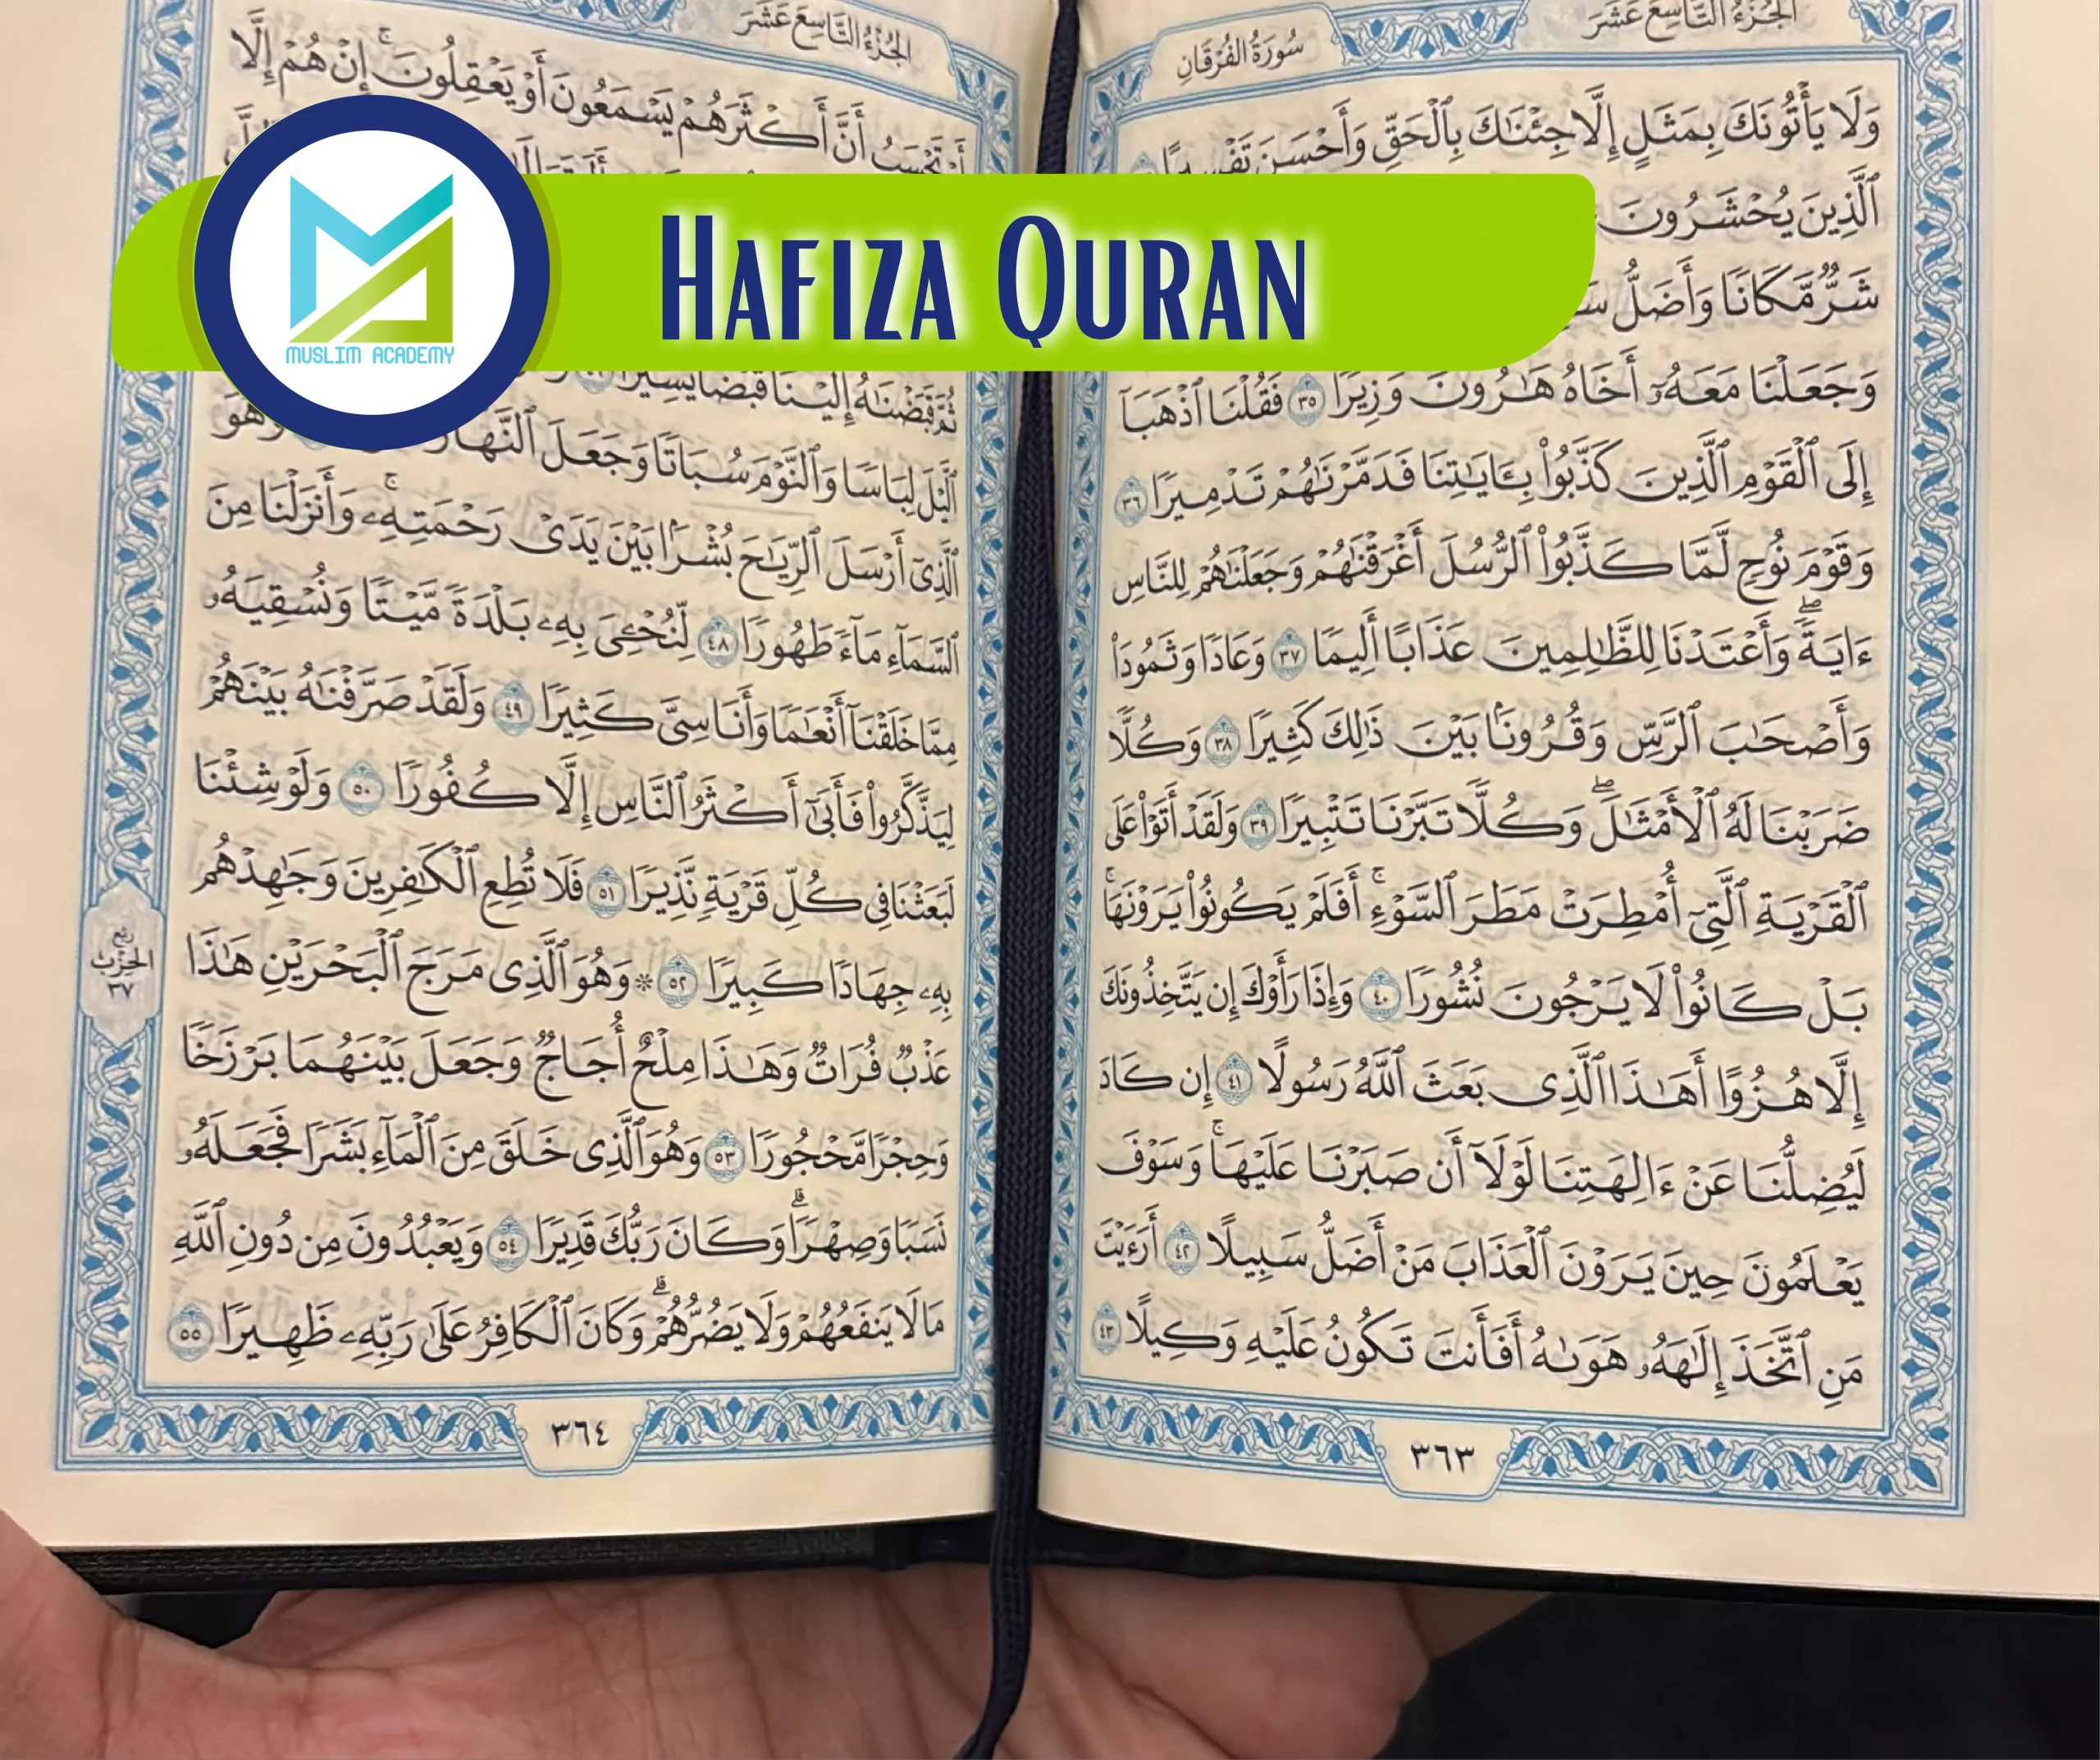 الجُزْءُ التَّاسِعَ عَشَرَ
سُورَةُ الفُرْقَانِ
وَلَا يَأْتُونَكَ بِمَثَلٍ إِلَّا جِئْنَٰكَ بِٱلْحَقِّ وَأَحْسَنَ تَفْسِيرًا
ٱلَّذِينَ يُحْشَرُونَ
شَرٌّ مَّكَانًا وَأَضَلُّ
وَجَعَلْنَا مَعَهُۥٓ أَخَاهُ هَٰرُونَ وَزِيرًا ٣٥ فَقُلْنَا ٱذْهَبَآ
إِلَى ٱلْقَوْمِ ٱلَّذِينَ كَذَّبُوا۟ بِـَٔايَٰتِنَا فَدَمَّرْنَٰهُمْ تَدْمِيرًا ٣٦
وَقَوْمَ نُوحٍ لَّمَّا كَذَّبُوا۟ ٱلرُّسُلَ أَغْرَقْنَٰهُمْ وَجَعَلْنَٰهُمْ لِلنَّاسِ
ءَايَةً ۖ وَأَعْتَدْنَا لِلظَّٰلِمِينَ عَذَابًا أَلِيمًا ٣٧ وَعَادًا وَثَمُودَا۟
وَأَصْحَٰبَ ٱلرَّسِّ وَقُرُونًۢا بَيْنَ ذَٰلِكَ كَثِيرًا ٣٨ وَكُلًّا
ضَرَبْنَا لَهُ ٱلْأَمْثَٰلَ ۖ وَكُلًّا تَبَّرْنَا تَتْبِيرًا ٣٩ وَلَقَدْ أَتَوْا۟ عَلَى
ٱلْقَرْيَةِ ٱلَّتِىٓ أُمْطِرَتْ مَطَرَ ٱلسَّوْءِ ۚ أَفَلَمْ يَكُونُوا۟ يَرَوْنَهَا ۚ
بَلْ كَانُوا۟ لَا يَرْجُونَ نُشُورًا ٤٠ وَإِذَا رَأَوْكَ إِن يَتَّخِذُونَكَ
إِلَّا هُزُوًا أَهَٰذَا ٱلَّذِى بَعَثَ ٱللَّهُ رَسُولًا ٤١ إِن كَادَ
لَيُضِلُّنَا عَنْ ءَالِهَتِنَا لَوْلَآ أَن صَبَرْنَا عَلَيْهَا ۚ وَسَوْفَ
يَعْلَمُونَ حِينَ يَرَوْنَ ٱلْعَذَابَ مَنْ أَضَلُّ سَبِيلًا ٤٢ أَرَءَيْتَ
مَنِ ٱتَّخَذَ إِلَٰهَهُۥ هَوَىٰهُ أَفَأَنتَ تَكُونُ عَلَيْهِ وَكِيلًا ٤٣
٣٦٣
الجُزْءُ التَّاسِعَ عَشَرَ
أَمْ تَحْسَبُ أَنَّ أَكْثَرَهُمْ يَسْمَعُونَ أَوْ يَعْقِلُونَ ۚ إِنْ هُمْ إِلَّا
Hafiza Quran
MUSLIM ACADEMY
ثُمَّ قَبَضْنَٰهُ إِلَيْنَا قَبْضًا يَسِيرًا
ٱلَّيْلَ لِبَاسًا وَٱلنَّوْمَ سُبَاتًا وَجَعَلَ ٱلنَّهَارَ وَهُوَ
ٱلَّذِىٓ أَرْسَلَ ٱلرِّيَٰحَ بُشْرًۢا بَيْنَ يَدَىْ رَحْمَتِهِۦ ۚ وَأَنزَلْنَا مِنَ
ٱلسَّمَآءِ مَآءً طَهُورًا ٤٨ لِّنُحْـِۧىَ بِهِۦ بَلْدَةً مَّيْتًا وَنُسْقِيَهُۥ
مِمَّا خَلَقْنَآ أَنْعَٰمًا وَأَنَاسِىَّ كَثِيرًا ٤٩ وَلَقَدْ صَرَّفْنَٰهُ بَيْنَهُمْ
لِيَذَّكَّرُوا۟ فَأَبَىٰٓ أَكْثَرُ ٱلنَّاسِ إِلَّا كُفُورًا ٥٠ وَلَوْ شِئْنَا
لَبَعَثْنَا فِى كُلِّ قَرْيَةٍ نَّذِيرًا ٥١ فَلَا تُطِعِ ٱلْكَٰفِرِينَ وَجَٰهِدْهُم
بِهِۦ جِهَادًا كَبِيرًا ٥٢ ۞ وَهُوَ ٱلَّذِى مَرَجَ ٱلْبَحْرَيْنِ هَٰذَا
عَذْبٌ فُرَاتٌ وَهَٰذَا مِلْحٌ أُجَاجٌ وَجَعَلَ بَيْنَهُمَا بَرْزَخًا
وَحِجْرًا مَّحْجُورًا ٥٣ وَهُوَ ٱلَّذِى خَلَقَ مِنَ ٱلْمَآءِ بَشَرًا فَجَعَلَهُۥ
نَسَبًا وَصِهْرًا ۗ وَكَانَ رَبُّكَ قَدِيرًا ٥٤ وَيَعْبُدُونَ مِن دُونِ ٱللَّهِ
مَا لَا يَنفَعُهُمْ وَلَا يَضُرُّهُمْ ۗ وَكَانَ ٱلْكَافِرُ عَلَىٰ رَبِّهِۦ ظَهِيرًا ٥٥
ربع
الحزب
٣٧
٣٦٤